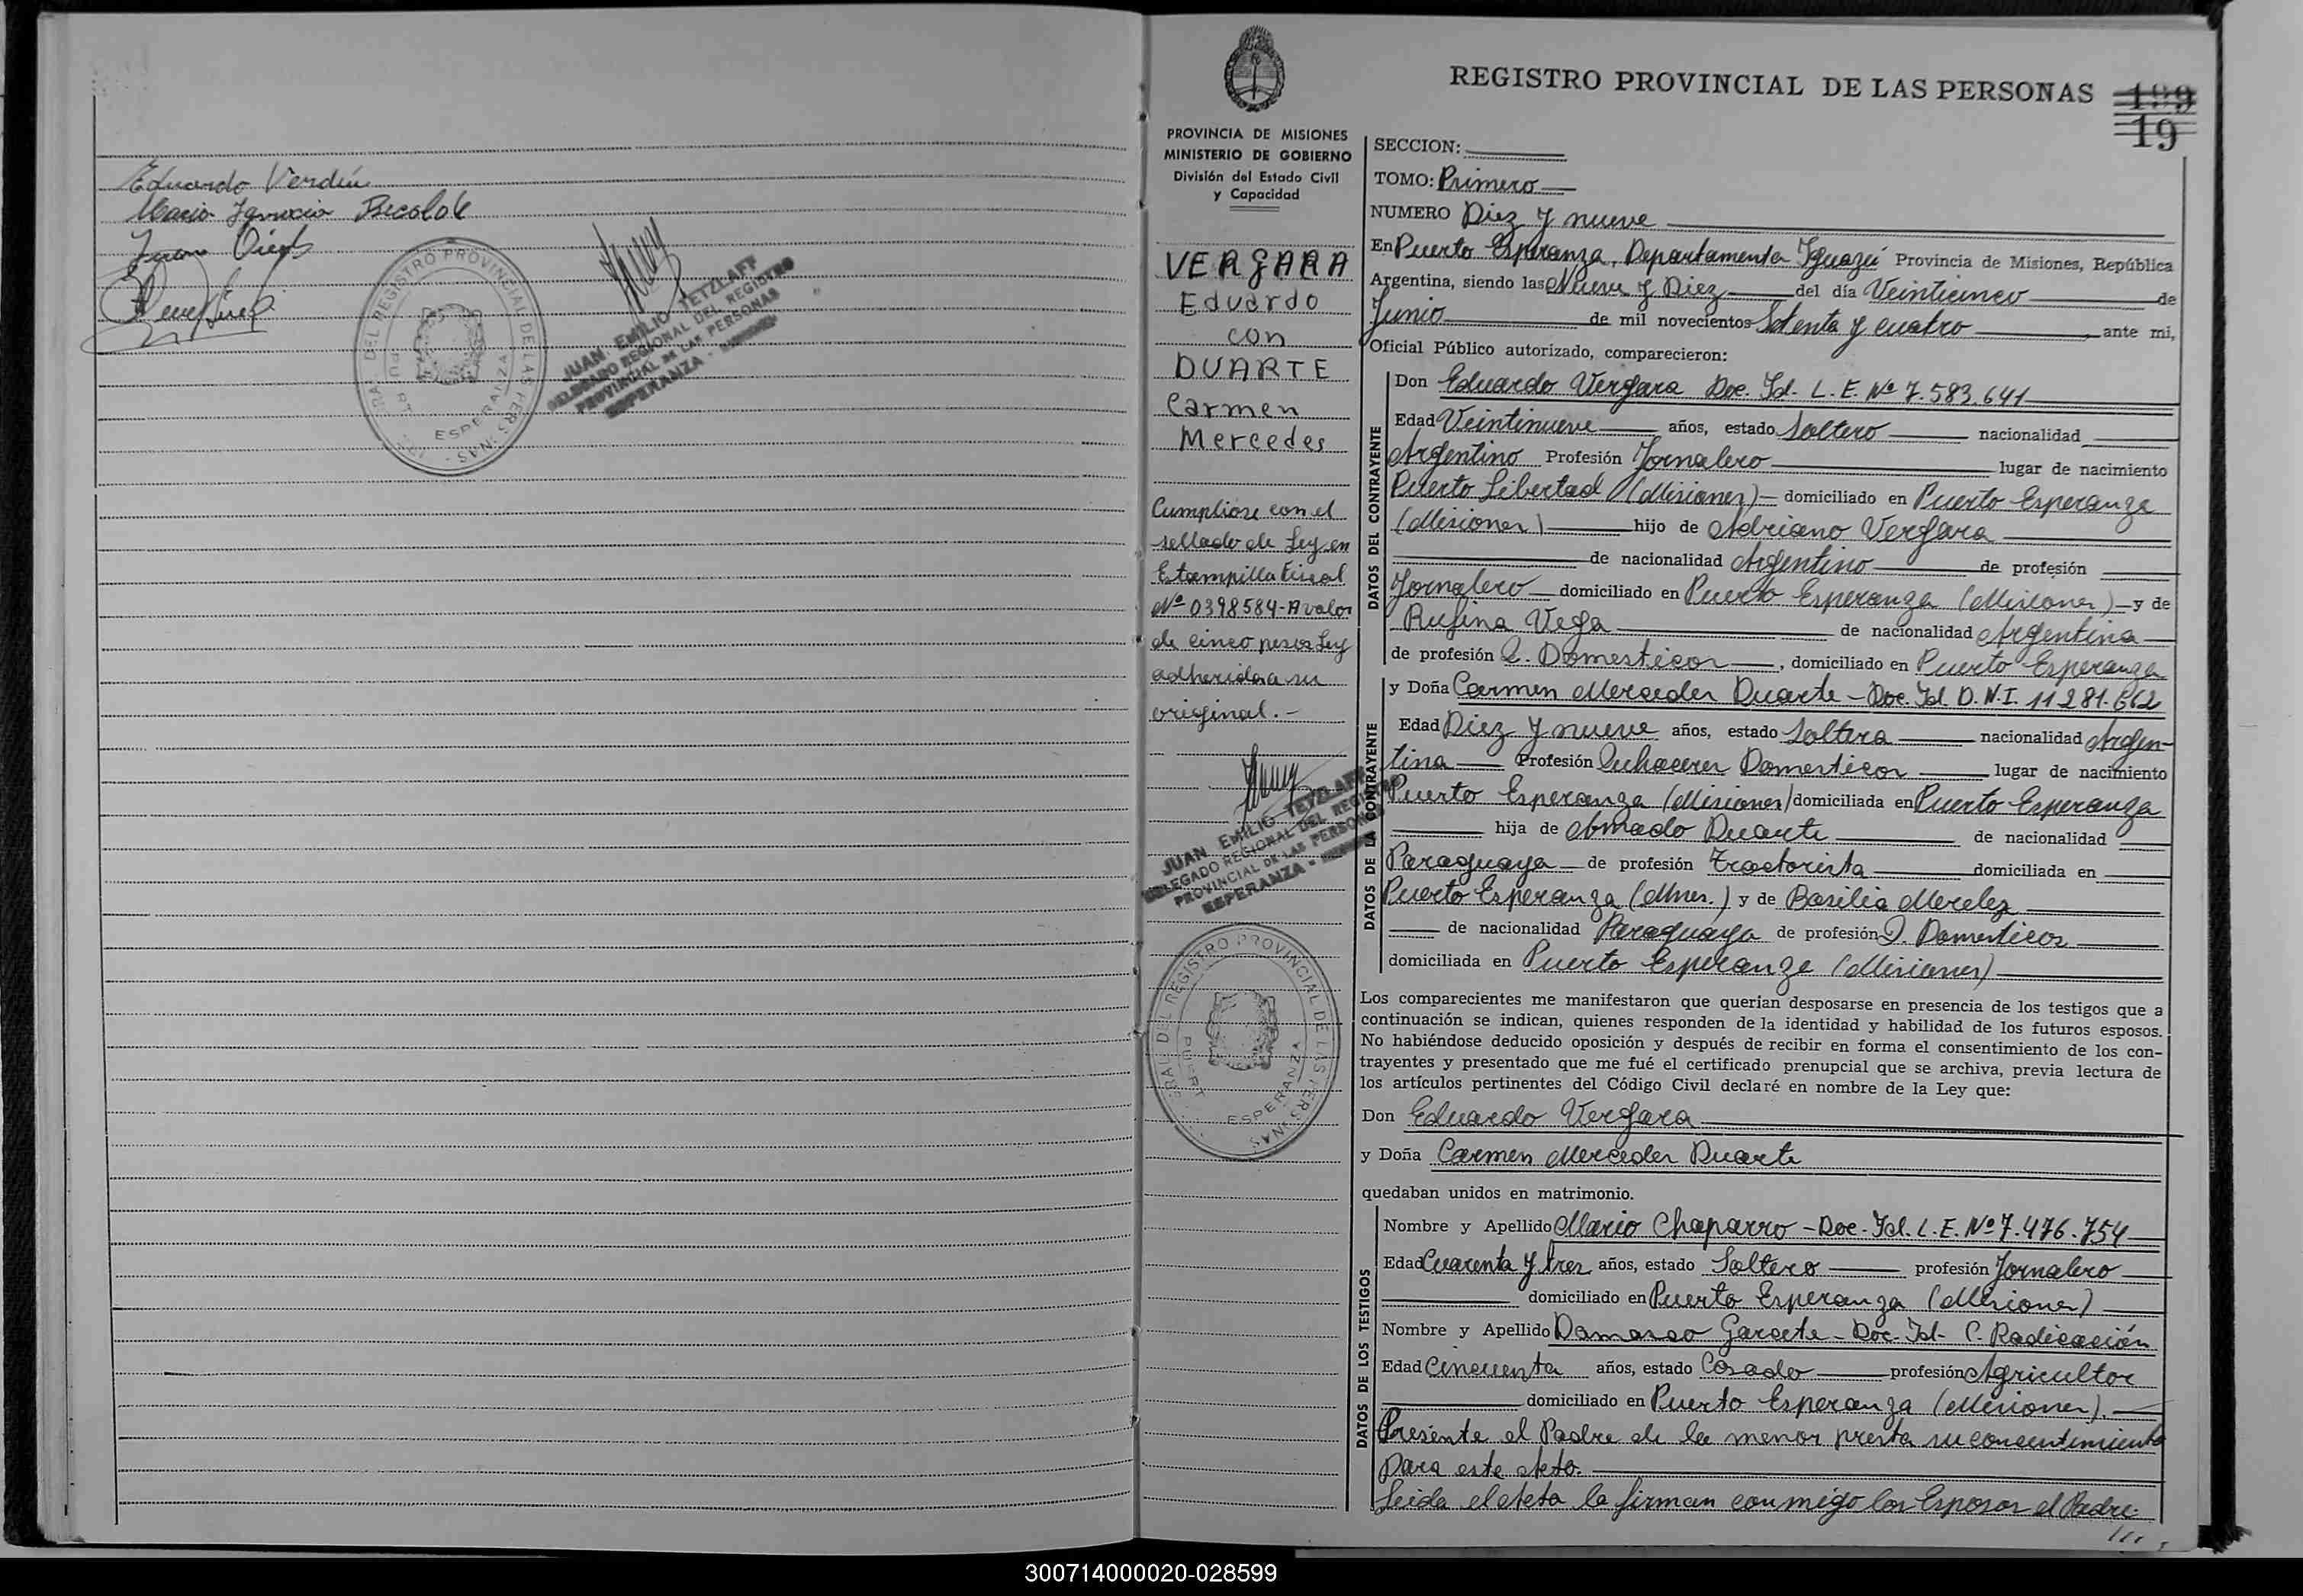 Eduardo Verdún
Mario Ignacio
Juan
DEL REGISTRO PROVINCIAL DE LAS PERSONAS
ESPERANZA
JUAN EMILIO TETZLAFF
DELEGADO REGIONAL DEL REGISTRO
PROVINCIAL DE LAS PERSONAS
ESPERANZA -
PROVINCIA DE MISIONES
MINISTERIO DE GOBIERNO
División del Estado Civil
y Capacidad
VERGARA
Eduardo
con
DUARTE
Carmen
Mercedes
Cumpliose con el
sellado de Ley en
Estampilla Fiscal
Nº 0398584-A valor
de cinco pesos Ley
adherida a su
original.-
JUAN EMILIO TETZLAFF
DELEGADO REGIONAL DEL REGISTRO
PROVINCIAL DE LAS PERSONAS
ESPERANZA -
DEL REGISTRO PROVINCIAL DE LAS PERSONAS
ESPERANZA
REGISTRO PROVINCIAL DE LAS PERSONAS 199
19
SECCION:
TOMO: Primero
NUMERO Diez y nueve
En Puerto Esperanza, Departamento Iguazú Provincia de Misiones, República
Argentina, siendo las Nueve y Diez del día Veinticinco de
Junio de mil novecientos Setenta y cuatro ante mi,
Oficial Público autorizado, comparecieron:
DATOS DEL CONTRAYENTE
Don Eduardo Vergara Doc. Id. L. E. Nº 7.583.641
Edad Veintinueve años, estado Soltero nacionalidad
Argentino Profesión Jornalero lugar de nacimiento
Puerto Libertad (Misiones) domiciliado en Puerto Esperanza
(Misiones) hijo de Adriano Vergara
de nacionalidad Argentino de profesión
Jornalero domiciliado en Puerto Esperanza (Misiones) y de
Rufina Vega de nacionalidad Argentina
de profesión Q. Domesticos, domiciliado en Puerto Esperanza
DATOS DE LA CONTRAYENTE
y Doña Carmen Mercedes Duarte - Doc. Id. D.N.I. 11281.662
Edad Diez y nueve años, estado Soltera nacionalidad Argen-
tina Profesión Quhaceres Domesticos lugar de nacimiento
Puerto Esperanza (Misiones) domiciliada en Puerto Esperanza
hija de Amado Duarte de nacionalidad
Paraguaya de profesión Tractorista domiciliada en
Puerto Esperanza (Mnes.) y de Basilia Merelez
de nacionalidad Paraguaya de profesión Q. Domesticos
domiciliada en Puerto Esperanza (Misiones)
Los comparecientes me manifestaron que querían desposarse en presencia de los testigos que a
continuación se indican, quienes responden de la identidad y habilidad de los futuros esposos.
No habiéndose deducido oposición y después de recibir en forma el consentimiento de los con-
trayentes y presentado que me fué el certificado prenupcial que se archiva, previa lectura de
los artículos pertinentes del Código Civil declaré en nombre de la Ley que:
Don Eduardo Vergara
y Doña Carmen Mercedes Duarte
quedaban unidos en matrimonio.
DATOS DE LOS TESTIGOS
Nombre y Apellido Mario Chaparro - Doc. Id. L. E. Nº 7.476.754
Edad Cuarenta y tres años, estado Soltero profesión Jornalero
domiciliado en Puerto Esperanza (Misiones)
Nombre y Apellido Damasao Garcete - Doc. Id- C. Radicación
Edad Cincuenta años, estado Casado profesión Agricultor
domiciliado en Puerto Esperanza (Misiones).
Presente el Padre de la menor presta su consentimiento
para este Acto.
Leida el Acta la firman conmigo los Esposos el Padre
///
300714000020-028599